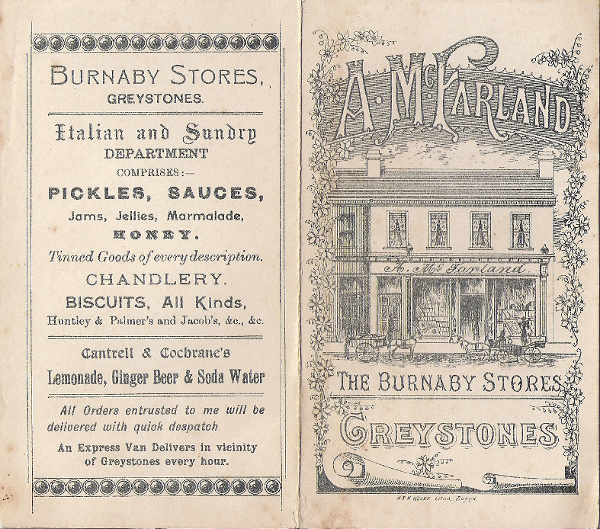 BURNABY STORES,
GREYSTONES.
Italian and Sundry
DEPARTMENT
COMPRISES:—
PICKLES, SAUCES,
Jams, Jellies, Marmalade,
HONEY.
Tinned Goods of every description.
CHANDLERY.
BISCUITS, All Kinds,
Huntley & Palmer's and Jacob's, &c., &c.
Cantrell & Cochrane's
Lemonade, Ginger Beer & Soda Water
All Orders entrusted to me will be
delivered with quick despatch
An Express Van Delivers in vicinity
of Greystones every hour.
A. McFARLAND
A. McFarland
THE BURNABY STORES
GREYSTONES